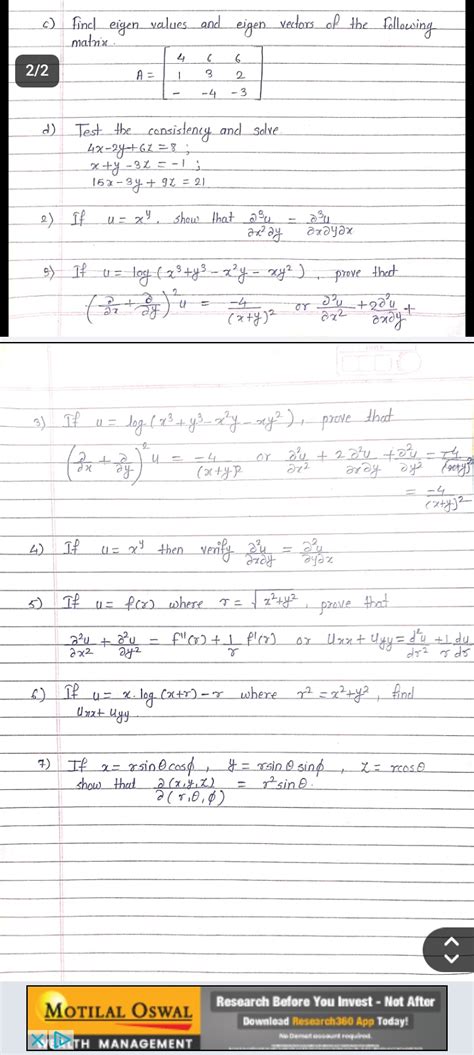 c) Find eigen values and eigen vectors of the following
matrix.
2/2
A = [ 4 6 6
1 3 2
- -4 -3 ]
d) Test the consistency and solve
4x-2y+6z=8 ;
x+y-3z=-1 ;
15x-3y+9z=21
2) If u = x^y, show that ∂³u/∂x²∂y = ∂³u/∂x∂y∂x
3) If u = log(x³+y³-x²y-xy²), prove that
(∂/∂x + ∂/∂y)² u = -4/(x+y)² or ∂²u/∂x² + 2∂²u/∂x∂y +
3) If u = log(x³+y³-x²y-xy²), prove that
(∂/∂x + ∂/∂y)² u = -4/(x+y)² or ∂²u/∂x² + 2 ∂²u/∂x∂y + ∂²u/∂y² = -4/(x+y)²
= -4/(x+y)²
4) If u = x^y then verify ∂²u/∂x∂y = ∂²u/∂y∂x
5) If u = f(r) where r = √x²+y², prove that
∂²u/∂x² + ∂²u/∂y² = f''(r) + 1/r f'(r) or Uxx + Uyy = d²u/dr² + 1/r du/dr
6) If u = x.log(x+r)-r where r² = x²+y², find
Uxx + Uyy.
7) If x = r sinθ cosφ, y = r sinθ sinφ, z = r cosθ
show that ∂(x,y,z)/∂(r,θ,φ) = r² sinθ.
MOTILAL OSWAL
WEALTH MANAGEMENT
Research Before You Invest - Not After
Download Research360 App Today!
No Demat account required.